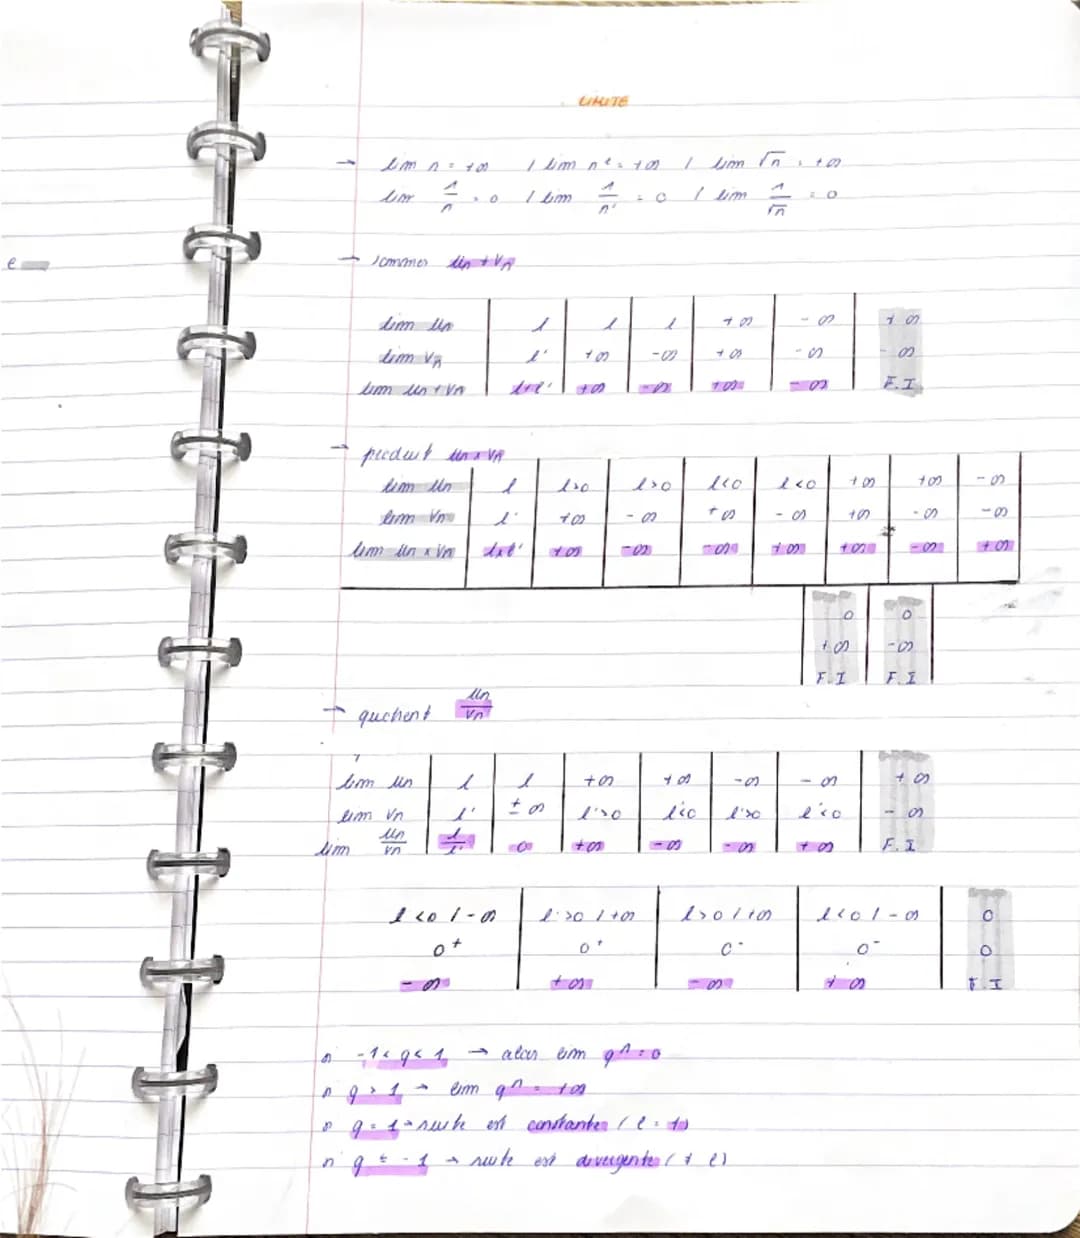 LIMITE
→ lim n = +∞ / lim n² = +∞ / lim √n = +∞
lim 1/n = 0 / lim 1/n² = 0 / lim 1/√n = 0
e
→ sommes Un + Vn
lim Un | l | l | l | +∞ | -∞ | +∞
lim Vn | l' | +∞ | -∞ | +∞ | -∞ | -∞
lim Un + Vn | l+l' | +∞ | -∞ | +∞ | -∞ | F.I
→ produit Un x Vn
lim Un | l | l>0 | l>0 | l<0 | l<0 | +∞ | +∞ | -∞
lim Vn | l' | +∞ | -∞ | +∞ | -∞ | +∞ | -∞ | -∞
lim Un x Vn | lxl' | +∞ | -∞ | -∞ | +∞ | +∞ | -∞ | +∞
0 | 0
+∞ | -∞
F.I | F.I
→ quotient Un/Vn
lim Un | l | l | +∞ | +∞ | -∞ | -∞ | +∞
lim Vn | l' | ±∞ | l'>0 | l'<0 | l'>0 | l'<0 | -∞
lim Un/Vn | l/l' | 0 | +∞ | -∞ | -∞ | +∞ | F.I
l<0 / -∞ | l>0 / +∞ | l>0 / +∞ | l<0 / -∞ | 0
0+ | 0+ | 0- | 0- | 0
-∞ | +∞ | -∞ | +∞ | F.I
-1 < q < 1 → alors lim qⁿ = 0
q > 1 → lim qⁿ = +∞
q = 1 → suite est constante (l = 1)
q ≤ -1 → suite est divergente (≠ l)